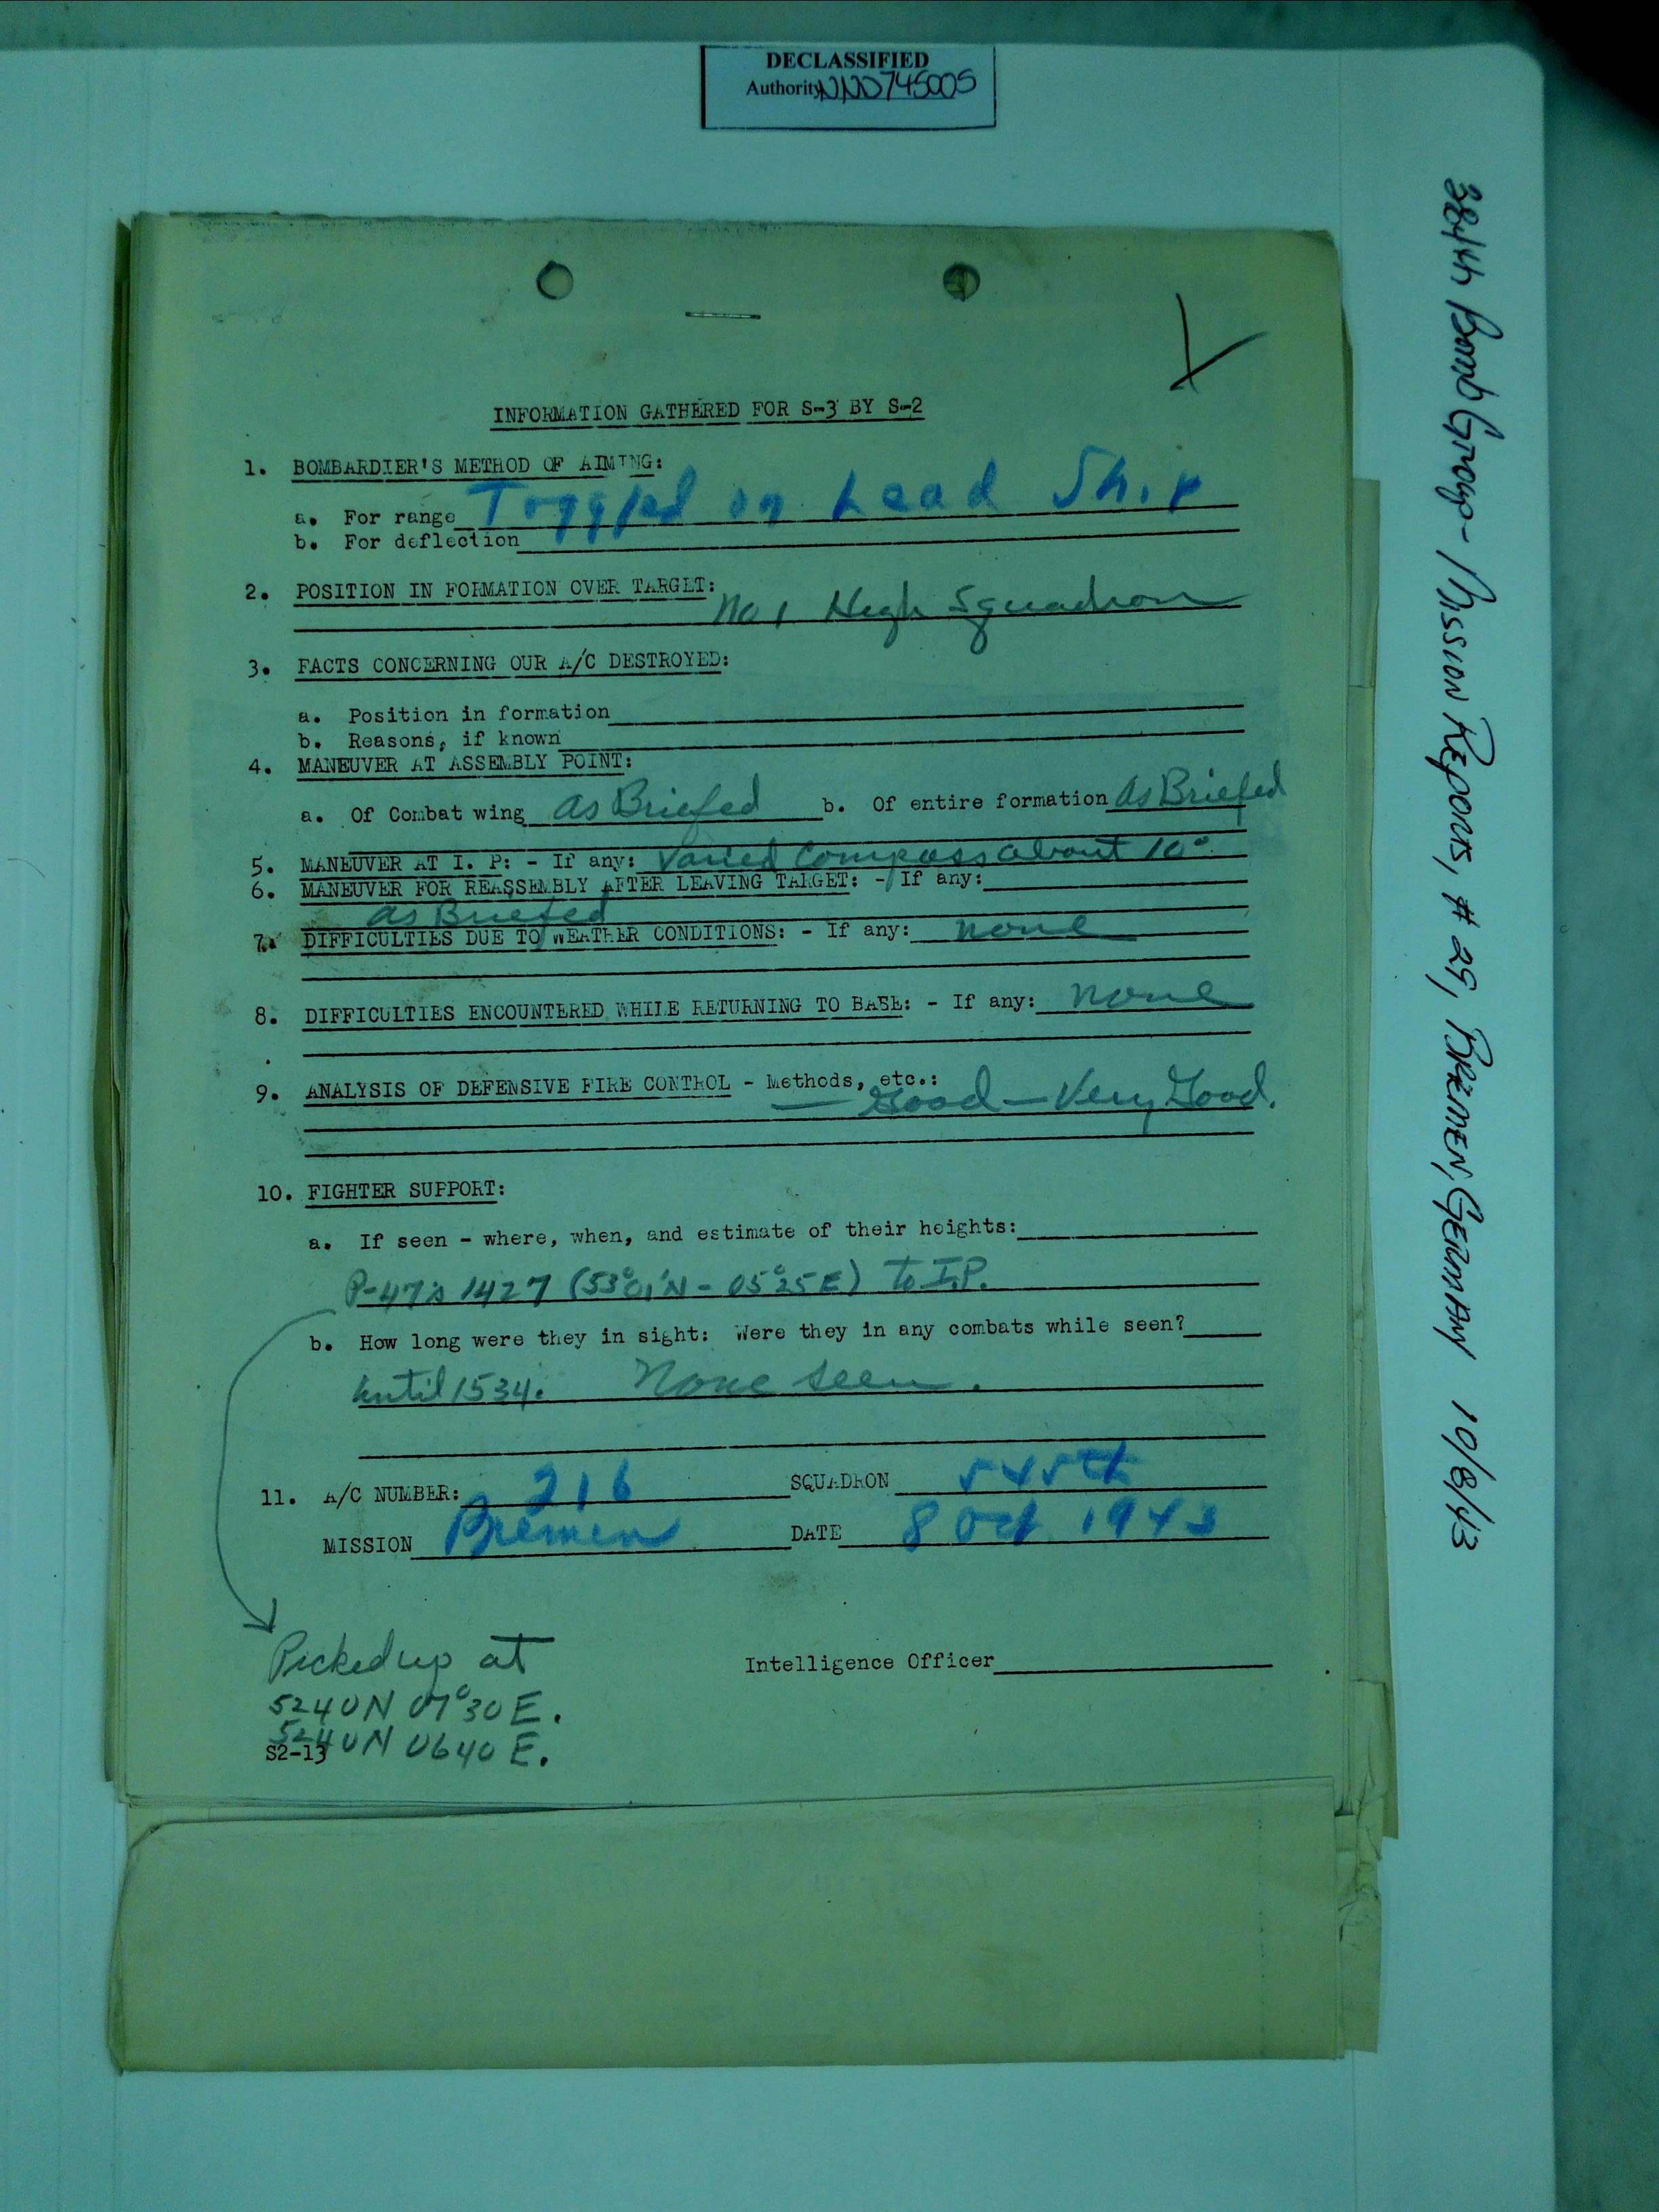 DECLASSIFIED
Authority NND745005
384th Bomb Group - Mission Reports, # 25, BREMEN, GERMANY 10/8/43
INFORMATION GATHERED FOR S-3 BY S-2
1. BOMBARDIER'S METHOD OF AIMING:
a. For range Toggled on Lead Ship
b. For deflection
2. POSITION IN FORMATION OVER TARGET:
No 1 High Squadron
3. FACTS CONCERNING OUR A/C DESTROYED:
a. Position in formation
b. Reasons, if known
4. MANEUVER AT ASSEMBLY POINT:
a. Of Combat wing as Briefed b. Of entire formation as Briefed
5. MANEUVER AT I. P: - If any: Varied Compass about 10°
6. MANEUVER FOR REASSEMBLY AFTER LEAVING TARGET: - If any:
as Briefed
7. DIFFICULTIES DUE TO WEATHER CONDITIONS: - If any: none
8. DIFFICULTIES ENCOUNTERED WHILE RETURNING TO BASE: - If any: none
9. ANALYSIS OF DEFENSIVE FIRE CONTROL - Methods, etc.:
— Good — Very Good.
10. FIGHTER SUPPORT:
a. If seen - where, when, and estimate of their heights:
P-47's 1427 (53°01'N - 05°25E) to I.P.
b. How long were they in sight: Were they in any combats while seen?
until 1534. None seen.
11. A/C NUMBER: 216 SQUADRON 545th
MISSION Bremen DATE 8 Oct 1943
Picked up at
5240N 07°30E.
5240N 0640E.
Intelligence Officer
S2-13